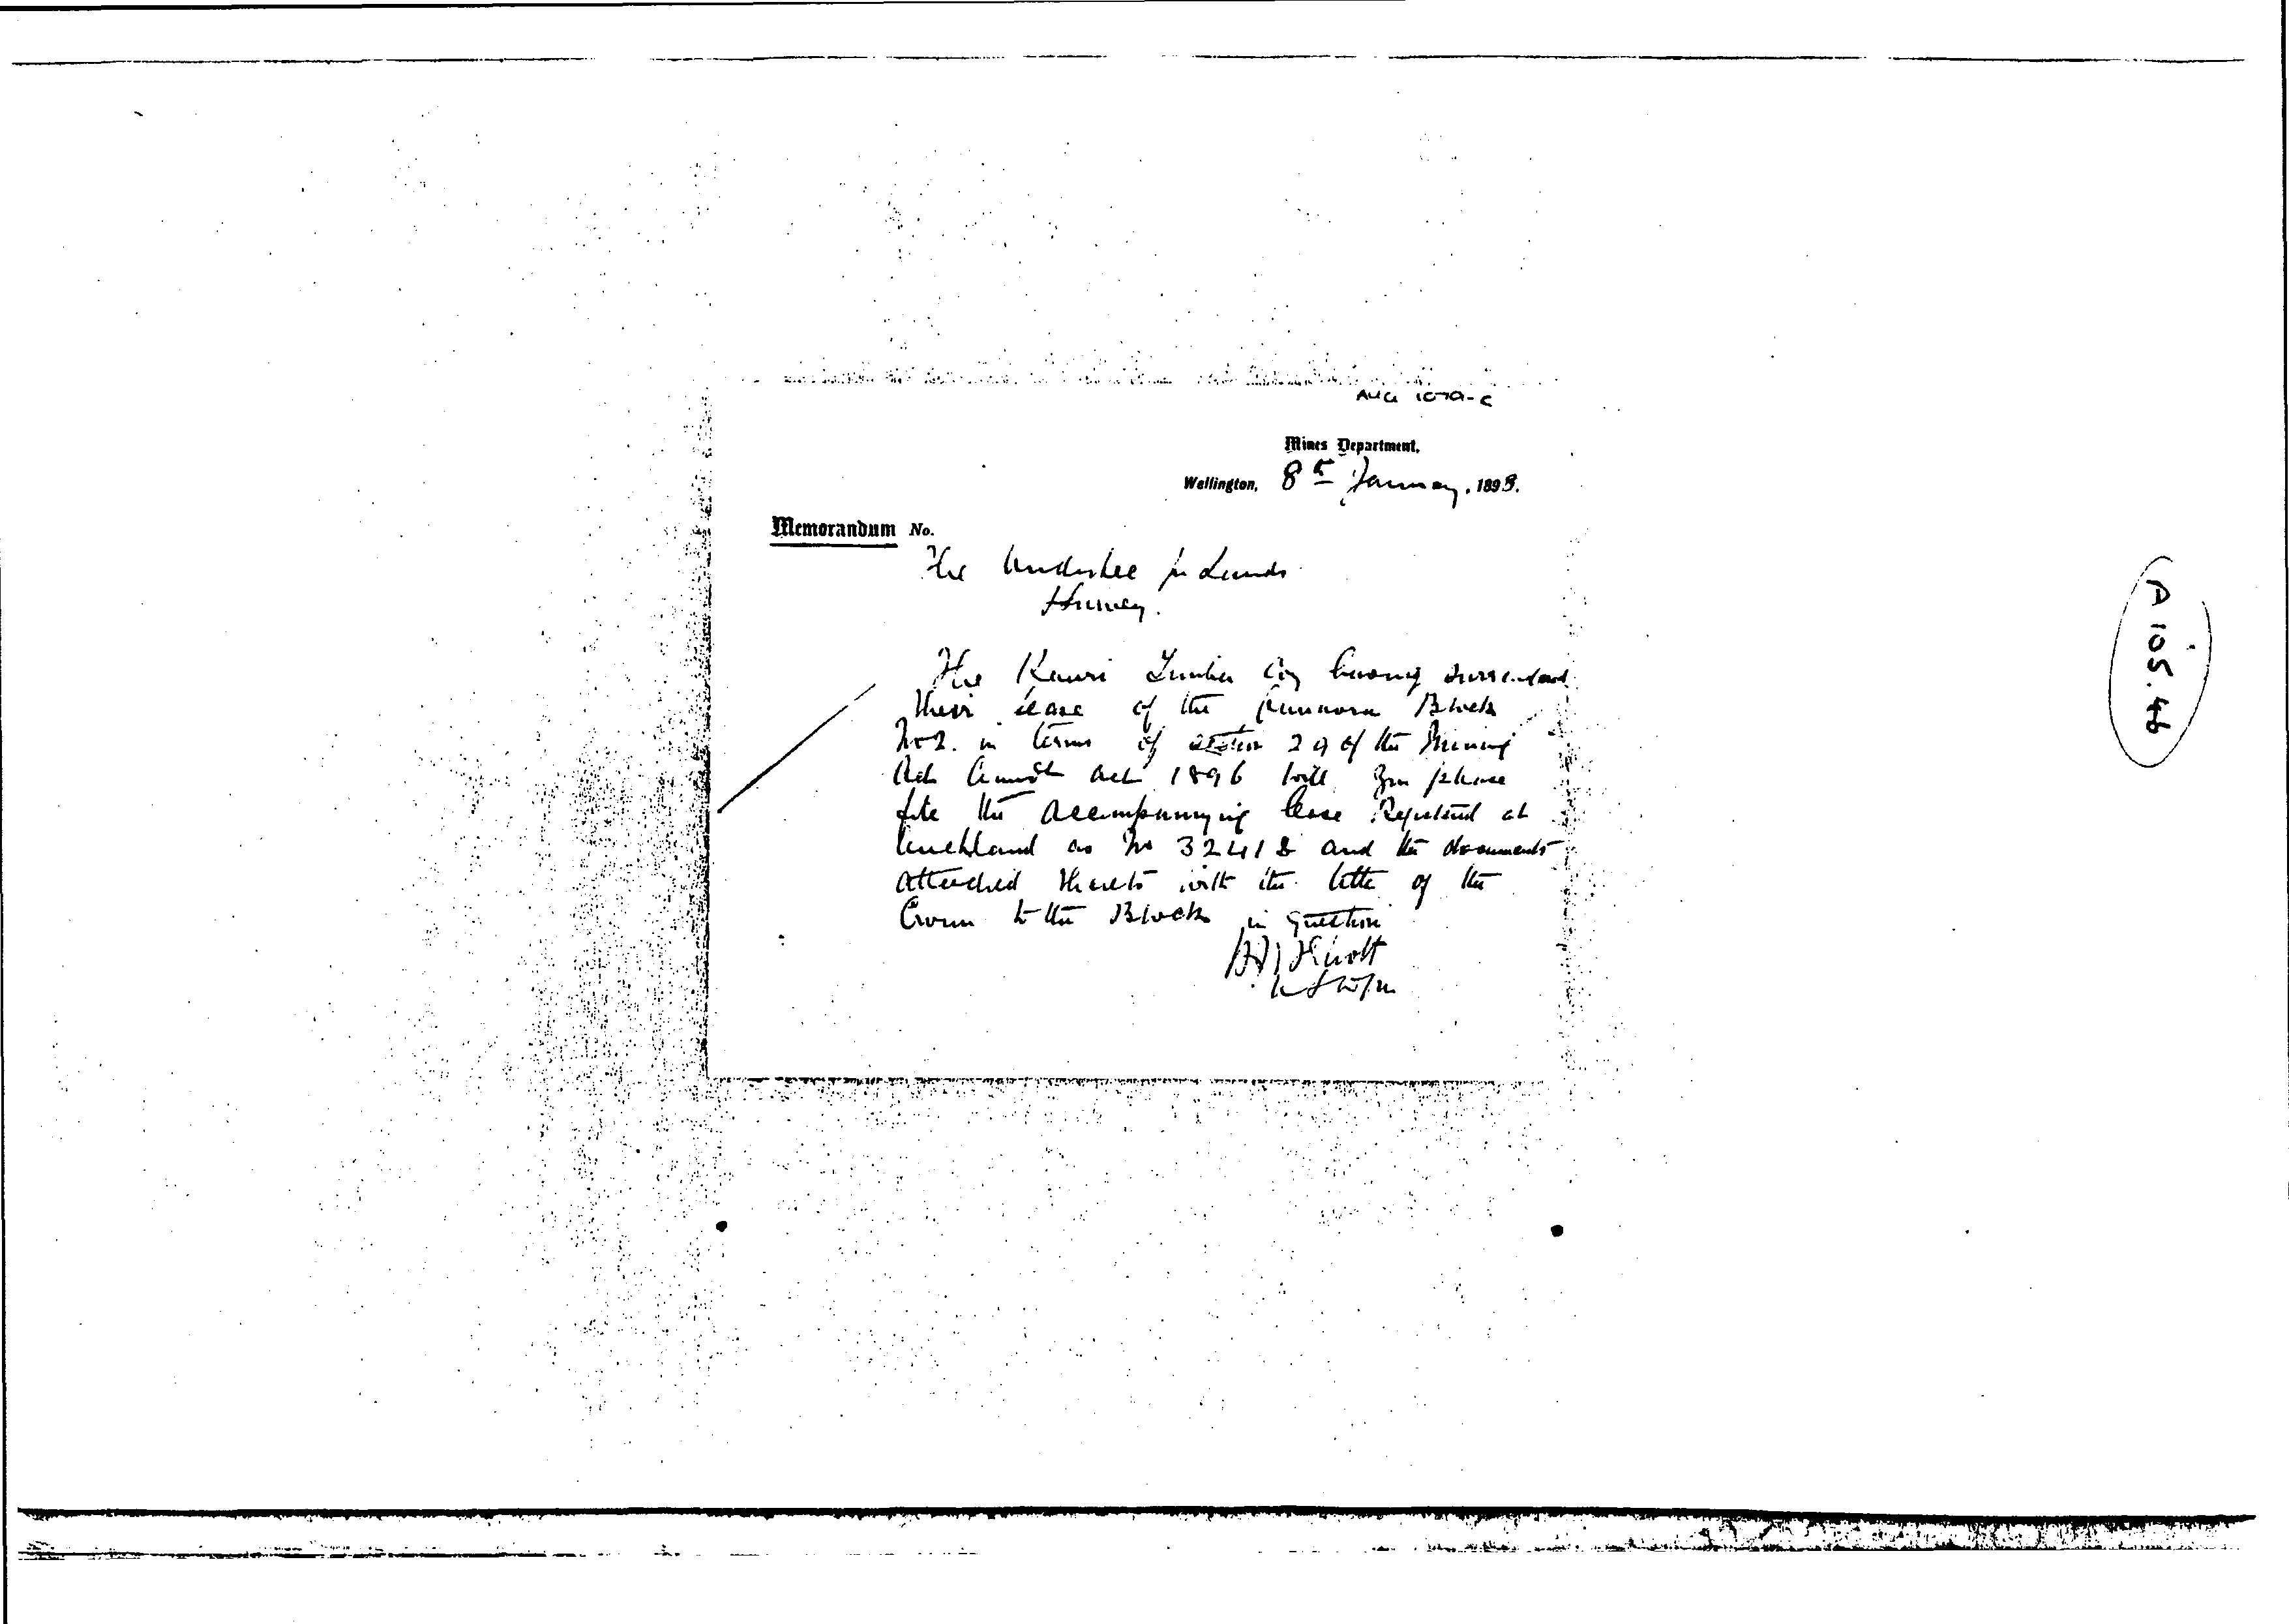 AUC 1079-C
Mines Department,
Wellington, 8th January, 1898.
Memorandum No.
The Undersec for Lands
The Kauri Timber Coy having surrendered
their lease of the Block
No 2. in terms of section 29 of the Mining
Act Amdt Act 1896 will you please
file the accompanying lease Registered at
Auckland as No 32418 and the documents
attached thereto with the title of the
Crown to the Block in question
A105.46